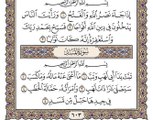 بِسْمِ اللَّهِ الرَّحْمَٰنِ الرَّحِيمِ
إِذَا جَاءَ نَصْرُ اللَّهِ وَالْفَتْحُ ۝١ وَرَأَيْتَ النَّاسَ
يَدْخُلُونَ فِي دِينِ اللَّهِ أَفْوَاجًا ۝٢ فَسَبِّحْ بِحَمْدِ رَبِّكَ
وَاسْتَغْفِرْهُ إِنَّهُ كَانَ تَوَّابًا ۝٣
سُورَةُ المَسَد
بِسْمِ اللَّهِ الرَّحْمَٰنِ الرَّحِيمِ
تَبَّتْ يَدَا أَبِي لَهَبٍ وَتَبَّ ۝١ مَا أَغْنَىٰ عَنْهُ مَالُهُ وَمَا كَسَبَ
۝٢ سَيَصْلَىٰ نَارًا ذَاتَ لَهَبٍ ۝٣ وَامْرَأَتُهُ حَمَّالَةَ الْحَطَبِ
۝٤ فِي جِيدِهَا حَبْلٌ مِّن مَّسَدٍ ۝٥
٦٠٣